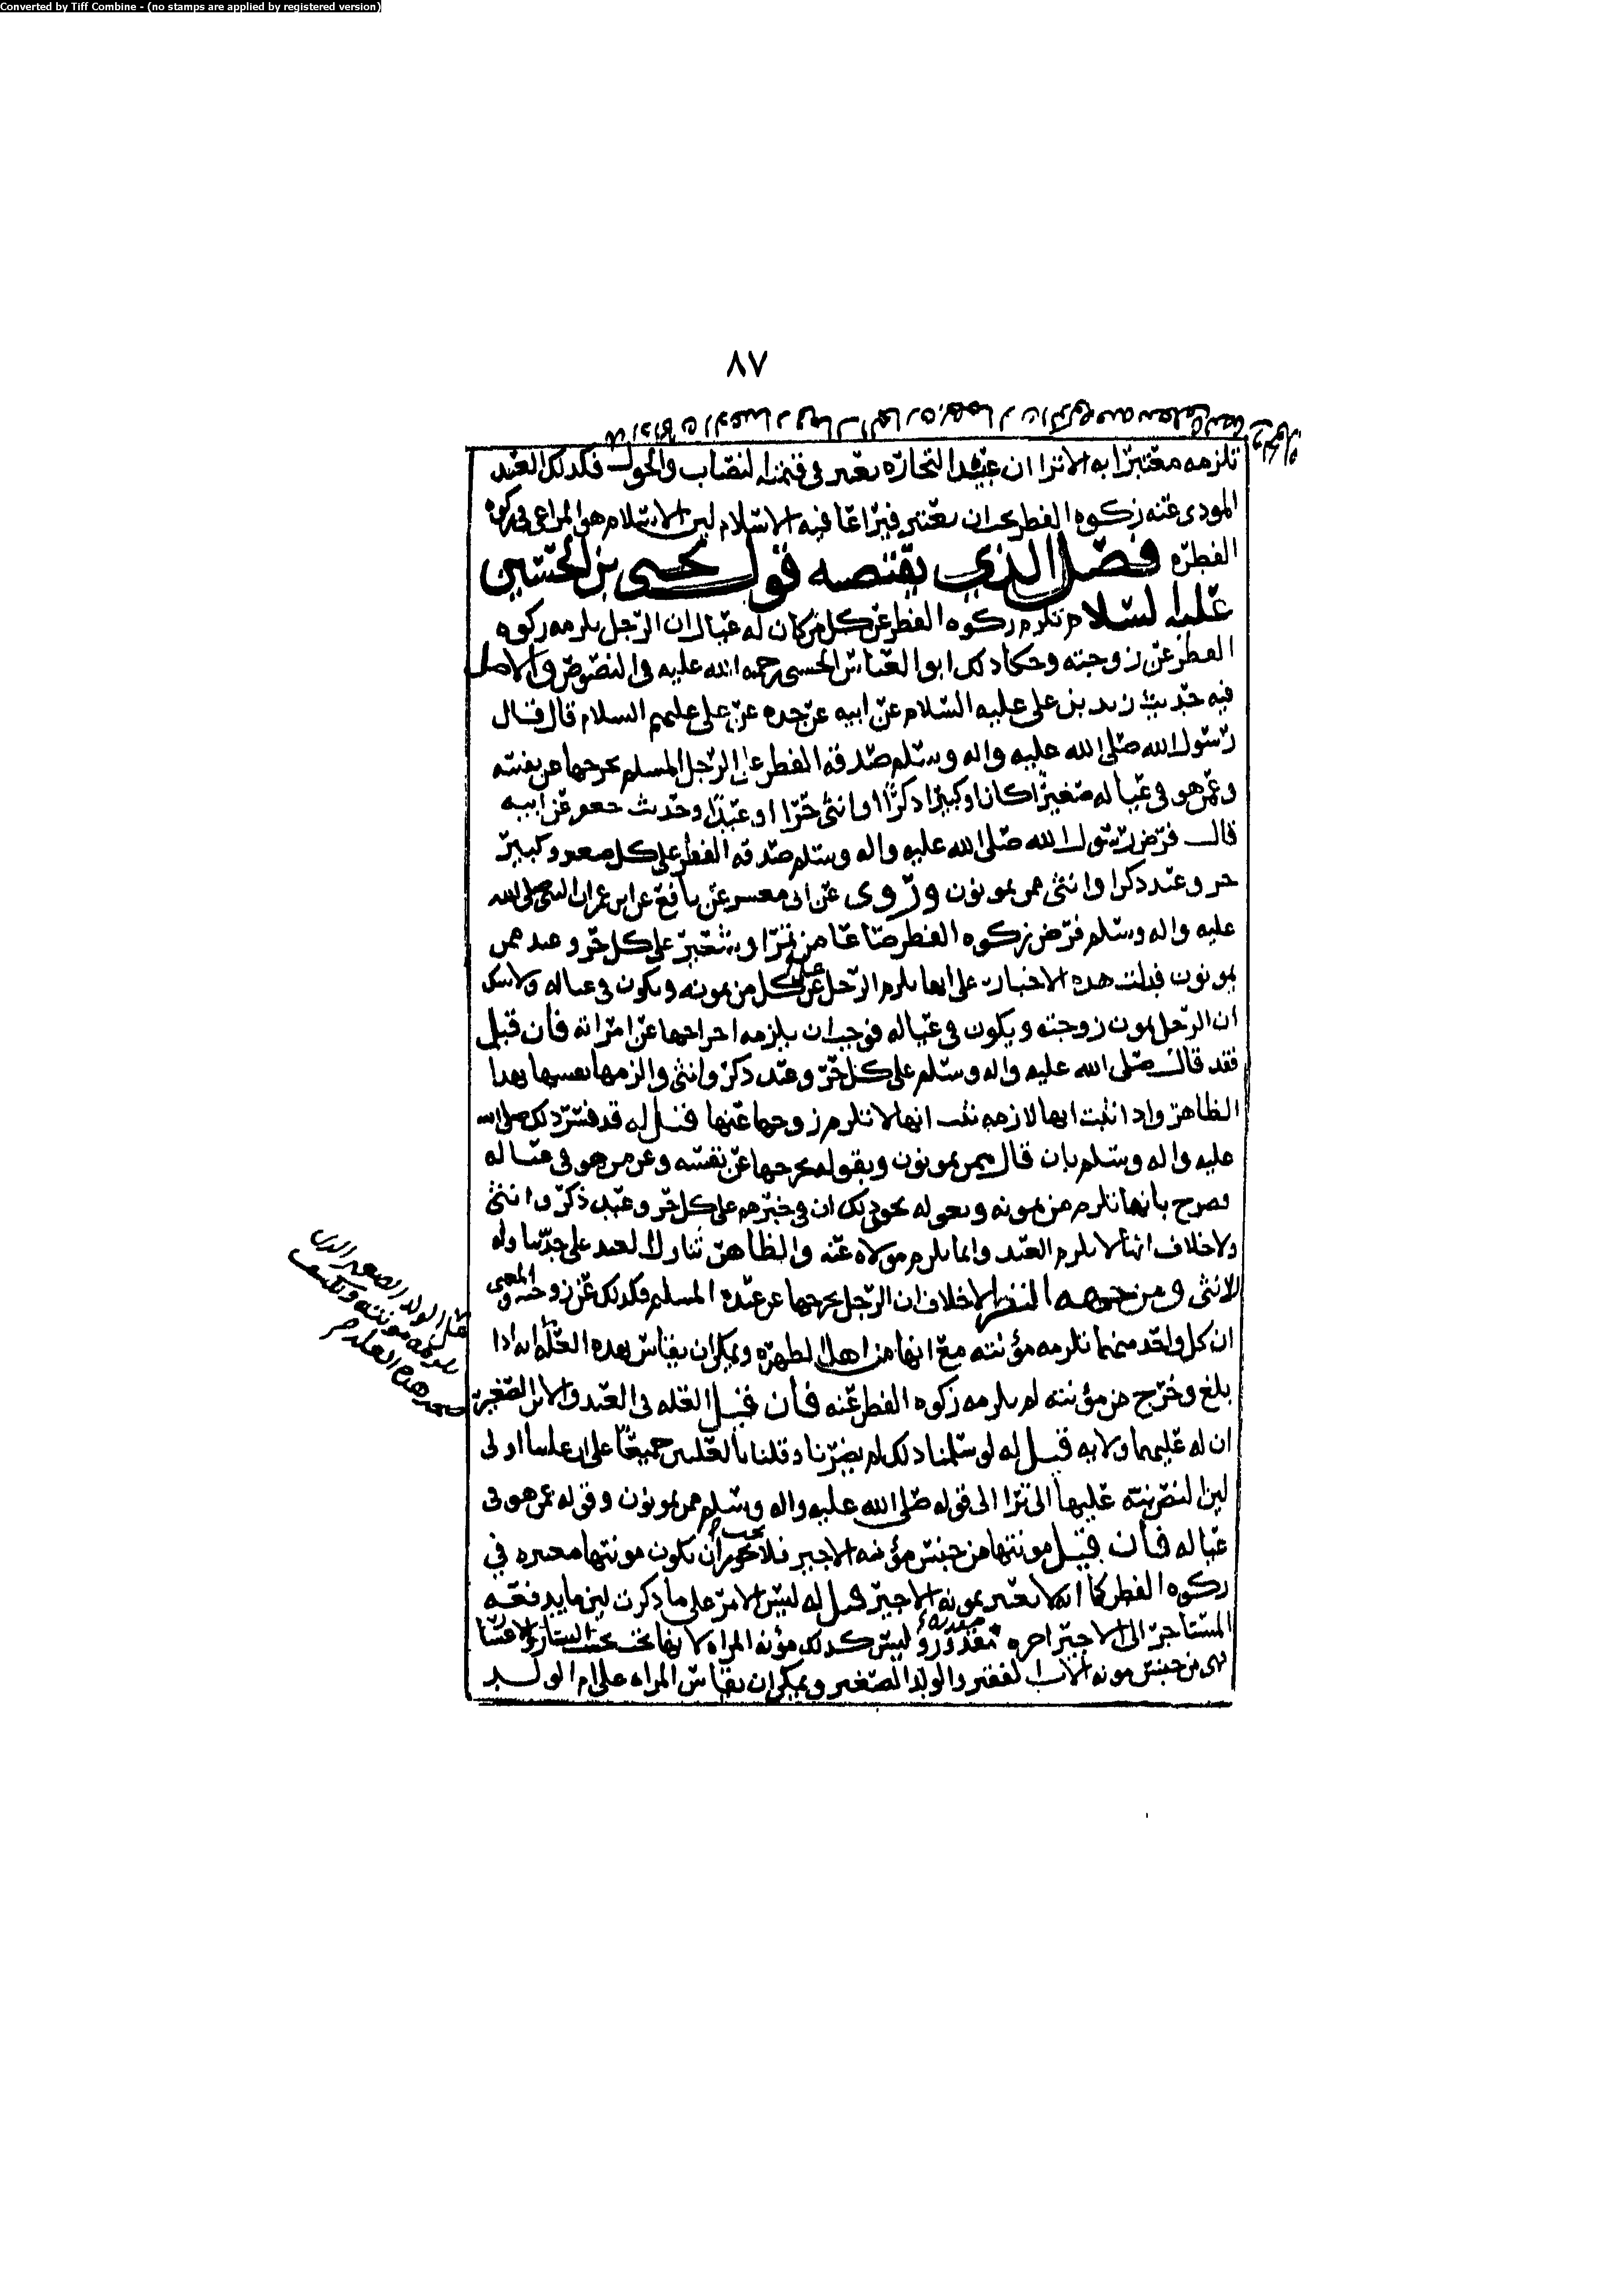 Converted by Tiff Combine - (no stamps are applied by registered version)
٨٧
تلزمه معتبرا به الا ترا ان عبيد التجاره يعتبر في قيمته النصاب والحول فكذلك العبد
المودى عنه زكوه الفطر يجب ان يعتبر فيراعا فيه الاسلام لين الاسلام هو المراعى في زكوه
الفطره فصل الذي يقتضيه قول يحيى بن الحسين
عليه السلام تلزم زكوه الفطر عن كل من كان له عيال ان الرجل يلزمه زكوه
الفطر عن زوجته وحكا ذلك ابو العباس الحسني رحمه الله عليه في النصوص والاصل
فيه حديث زيد بن علي عليه السلام عن ابيه عن جده عن علي عليهم السلام قال قال
رسول الله صلى الله عليه واله وسلم صدقه الفطر على الرجل المسلم يخرجها عن نفسه
وعمن هو في عياله صغيرا كان او كبيرا ذكرا او انثى حرا او عبدا وحديث جعفر عن ابيه
قال فرض رسول الله صلى الله عليه واله وسلم صدقه الفطر على كل صغير وكبير
حر وعبد ذكرا وانثى ممن يمونون وروى عن ابي معشر عن نافع عن ابن عمر ان النبي صلى الله
عليه واله وسلم فرض زكوه الفطر صاعا من تمرا وشعير على كل حر وعبد ممن
يمونون فدلت هذه الاخبار على انها يلزم الرجل عن كل من يمونه ويكون في عياله ولا شك
ان الرجل يمون زوجته ويكون في عياله فوجب ان يلزمه اخراجها عن امراته فان قيل
فقد قال صلى الله عليه واله وسلم على كل حر وعبد ذكر وانثى والزمها نفسها بهذا
الظاهر واذا ثبت انها لازمه ثبت انها لا تلزم زوجها عنها قيل له قد فسر ذلك صلى الله
عليه واله وسلم بان قال ممن يمونون وبقوله يخرجها عن نفسه وعن من هو في عياله
فصرح بانها تلزم من يمونه وبقوله نحو ذلك ان في خبرهم على كل حر وعبد ذكر وانثى
ولا خلاف انها لا يلزم العبد وانما يلزم مولاه عنه والظاهر تناول العبد على حد تناوله
الانثى ومن جهه النظر لا خلاف ان الرجل يخرجها عن عبده المسلم فكذلك عن زوجته والمعنى
ان كل واحد منهما تلزمه مؤنته مع انها من اهل الطهره ويمكن ان يقاس بهذه العله انه اذا
بلغ وخرج من مؤنته لم يلزمه زكوه الفطر عنه فان قيل العله في العبد والابن الصغير
ان له عليهما ولايه قيل له لو سلمنا ذلك لم يضرنا وقلنا بالعلتين جميعا على ان علتنا اولى
لين النص نبه عليها الى ترا الى قوله صلى الله عليه واله وسلم ممن يمونون وقوله عمن هو في
عياله فان قيل مونتها من جنس مؤنه الاجير فلا يجوز ان تكون مونتها معتبره في
زكوه الفطر كما انه لا يعتبر بمونه الاجير قيل له ليس الامر على ما ذكرت لين ما يدفعه
المستاجر الى الاجير اجره ليس كذلك مؤنه المراه لانها تجب بحسب
فهى من جنس مونه الاب الفقير والولد الصغير ويمكن ان يقاس المراه على ام الولد